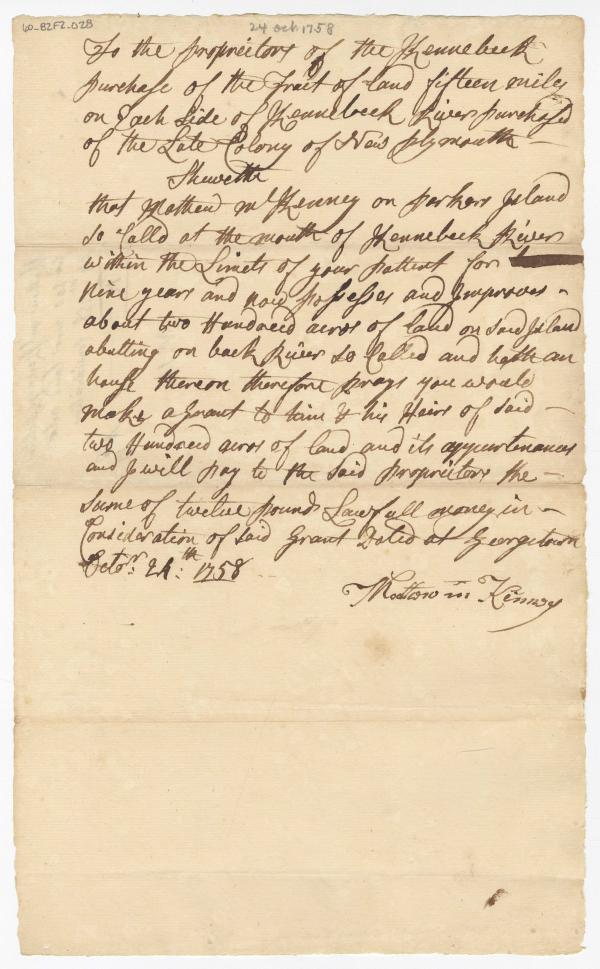 60-B2F2-D2B
24 Oct 1758
To the Proprietors of the Kennebeck
purchase of the Tract of land fifteen miles
on Each Side of Kennebeck River purchased
of the Late Colony of New plymouth —
Sheweth
that Mathew mc Kenney on parkers Island
so Calld at the mouth of Kennebeck River
within the Limets of your pattent for
Nine years and now possesses and Improves -
about two Hundred acros of land on said Island
abutting on back River so Called and hath an
house thereon therefore prays you would
make a Grant to him & his Heirs of said —
two Hundred acros of land and its appurtenances
and I will pay to the said propriètors the —
sume of twelve pounds Lawfull money in —
Consideration of said Grant Dated at Georgetown
Octor: 24:th 1758
Mattow m Kinney